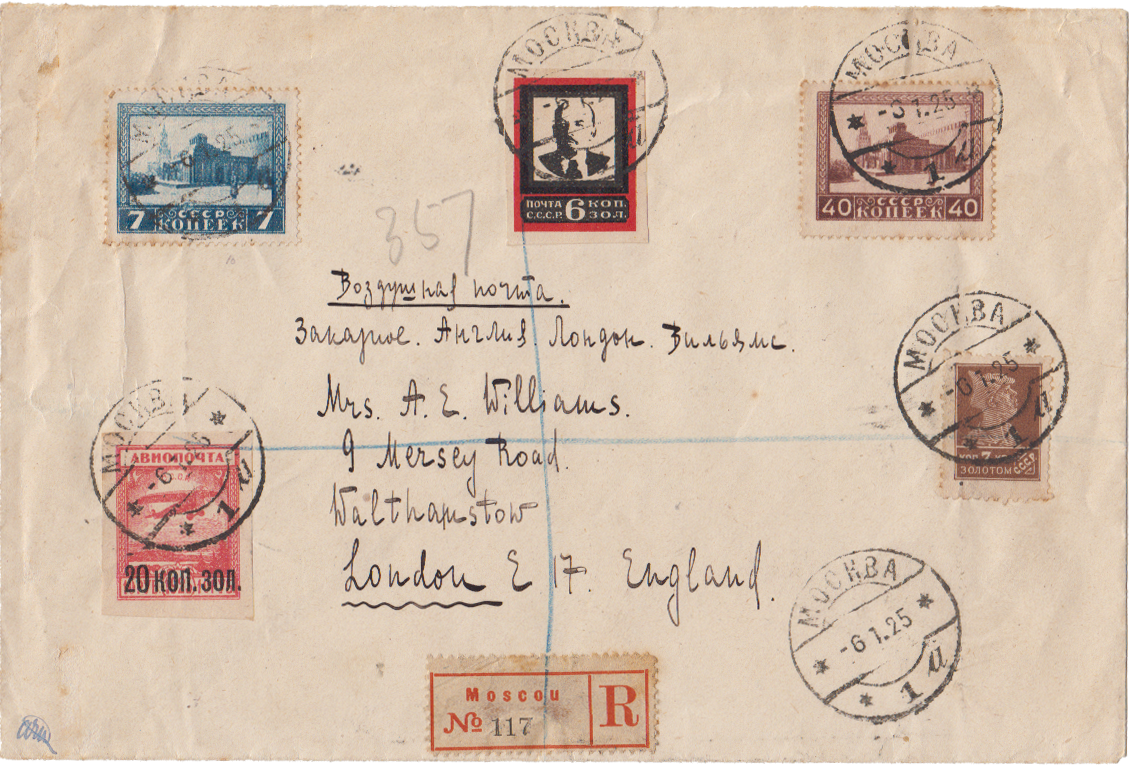 МОСКВА
МОСКВА
МОСКВА
-6 1.25
1 а
СССР
7 КОПЕЕК 7
ПОЧТА 6 КОП.
С.С.С.Р. ЗОЛ.
СССР
40 КОПЕЕК 40
357
Воздушная почта.
Закарное. Англия. Лондон. Вильямс.
Mrs. A. E. Williams.
9 Mersey Road.
Walthamstow
London E 17. England.
МОСКВА
-6 1.25
1 а
КОП 7
ЗОЛОТОМ СССР
МОСКВА
-6 1.25
1 а
АВИОПОЧТА
20 КОП. ЗОЛ.
МОСКВА
-6 1.25
1 а
Moscou
№ 117
R